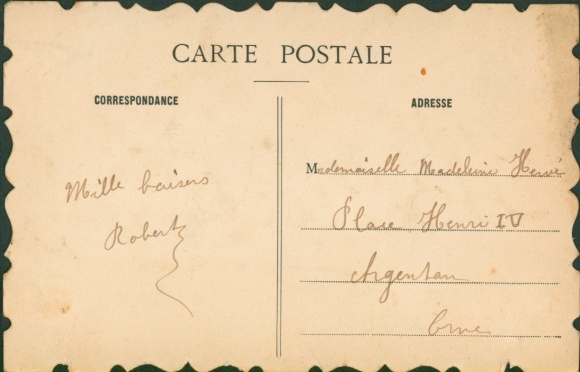 CARTE POSTALE
CORRESPONDANCE
ADRESSE
Mille baisers
Robert
Mademoiselle Madeleine Hervé
Place Henri IV
Argentan
Orne